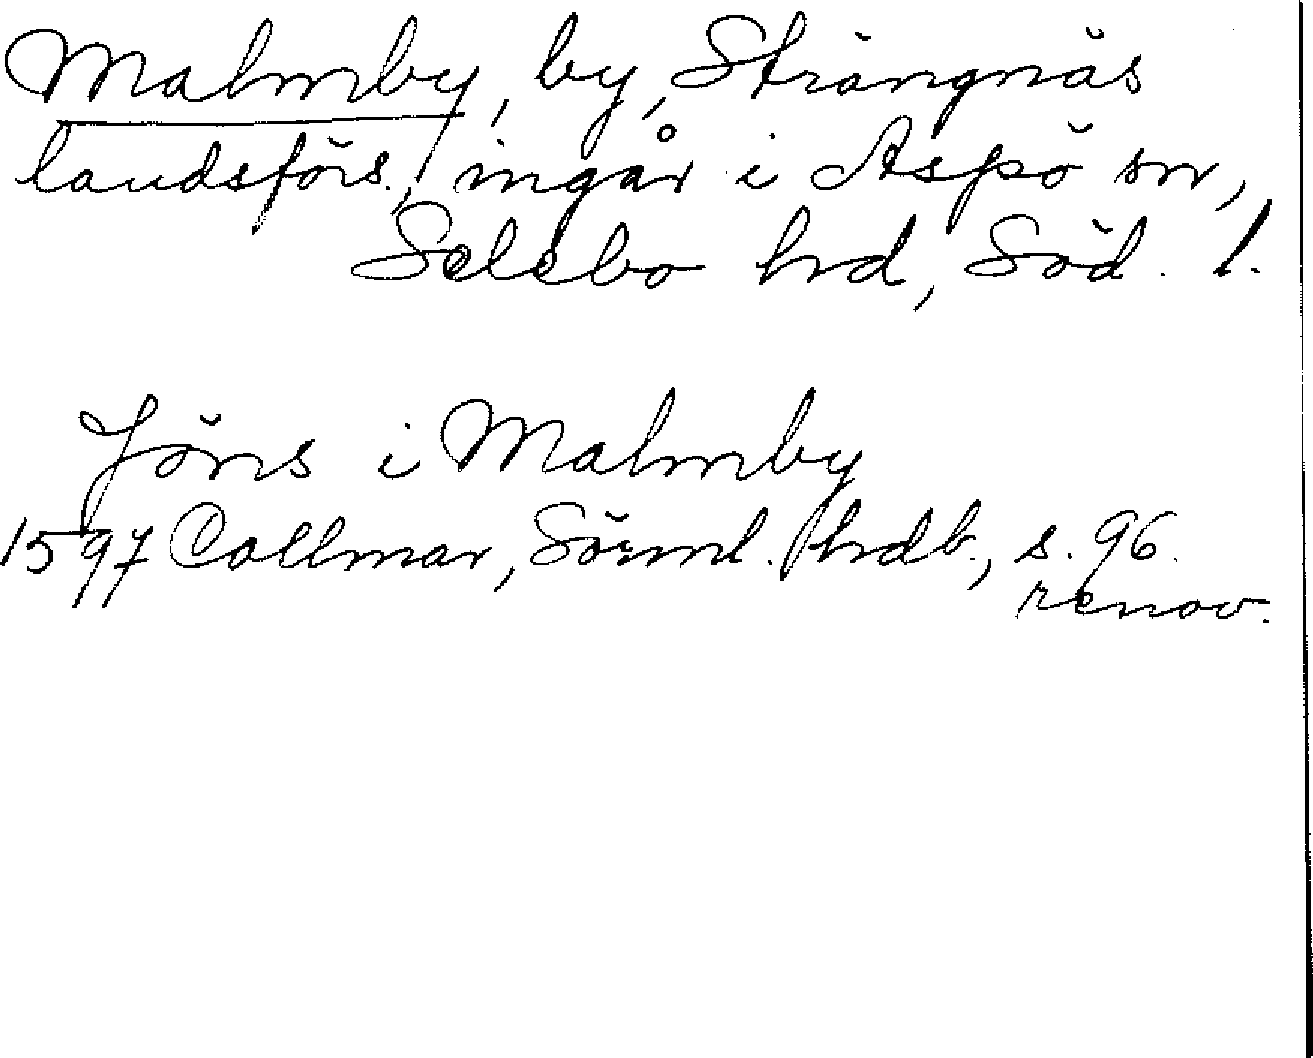 Malmby, by, Strängnäs
landsförs., ingår i Aspö sn,
Selebo hd, Söd. l.
Jöns i Malmby
1597 Collmar, Sörml. hdb., s. 96.
renov.